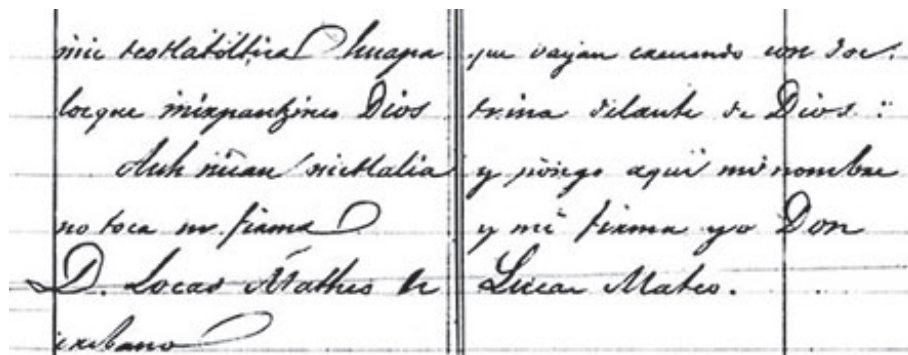 mic teotlatoltica huapa
locque mixpantzinco Dios
Auh nican nictlalia
no toca no firma
D. Lucas Matheo Es
cribano
que vayan creciendo con doc-
trina delante de Dios:
y pongo aqui mi nombre
y mi firma yo Don
Lucas Mateo.